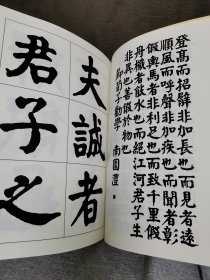 登高而招臂非加長也而見者遠
順風而呼聲非加疾也而聞者彰
假輿馬者非利足也而致千里假
舟檝者非能水也而絕江河君子生
非異也善假於物也
荀子勸學 南園灃
夫誠者
君子之